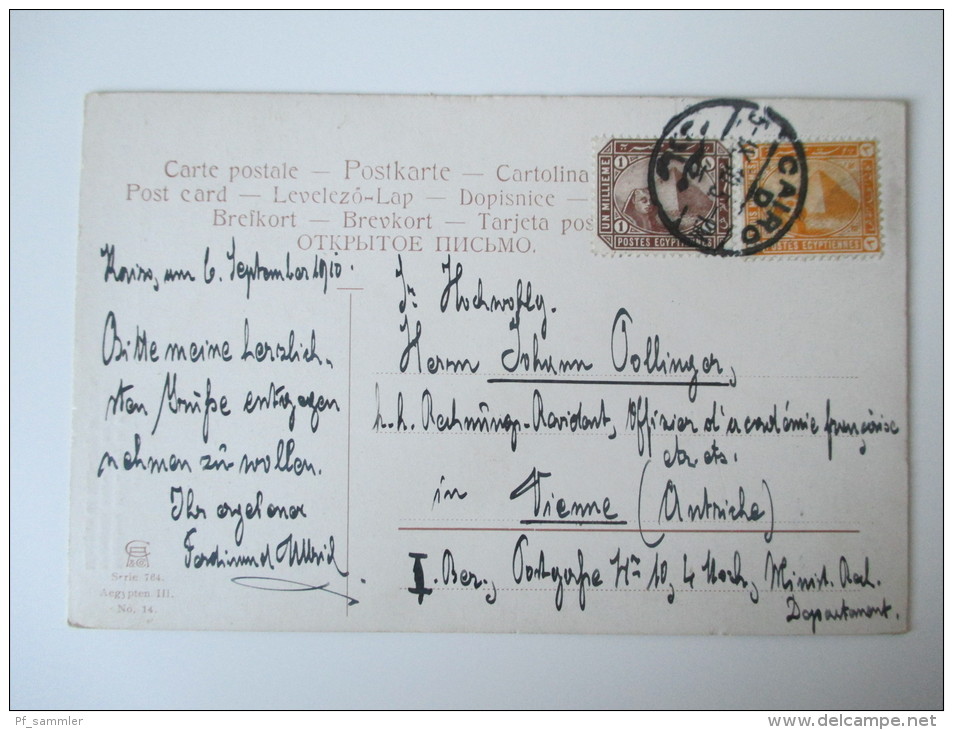 Carte postale — Postkarte — Cartolina
Post card — Levelező-Lap — Dopisnice —
Brefkort — Brevkort — Tarjeta pos
ОТКРЫТОЕ ПИСЬМО.
UN MILLIEME
1
1
POSTES EGYPTIENNES
POSTES EGYPTIENNES
CAIRO
D
Kairo, am 6. September 1910.
Bitte meine herzlich-
sten Grüße entgegen
nehmen zu wollen.
Ihr ergebener
Ferdinand
Sr. Hochwohlg.
Herrn Johann Pollinger,
k. k. Rechnungs-Revident, Offizier d'académie française
etc etc.
in Vienne (Autriche)
I. Bez., Postgasse Nº 10, 4 Stock, Minist. Rech.
Departement.
Serie 764.
Aegypten III.
No. 14.
Pf_sammler
http://www.delcampe.net